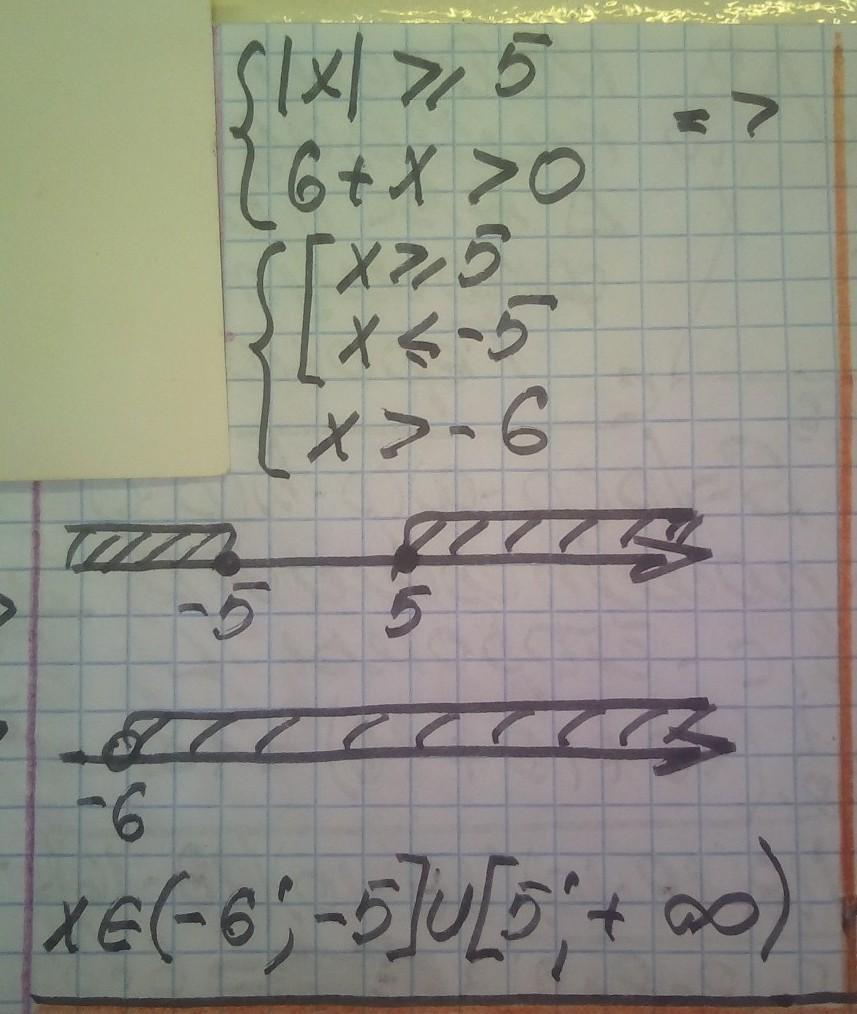 |x| ⩾ 5
6 + x > 0 =>
x ⩾ 5
x ⩽ -5
x > -6
-5 5
-6
x ∈ (-6; -5] ∪ [5; + ∞)